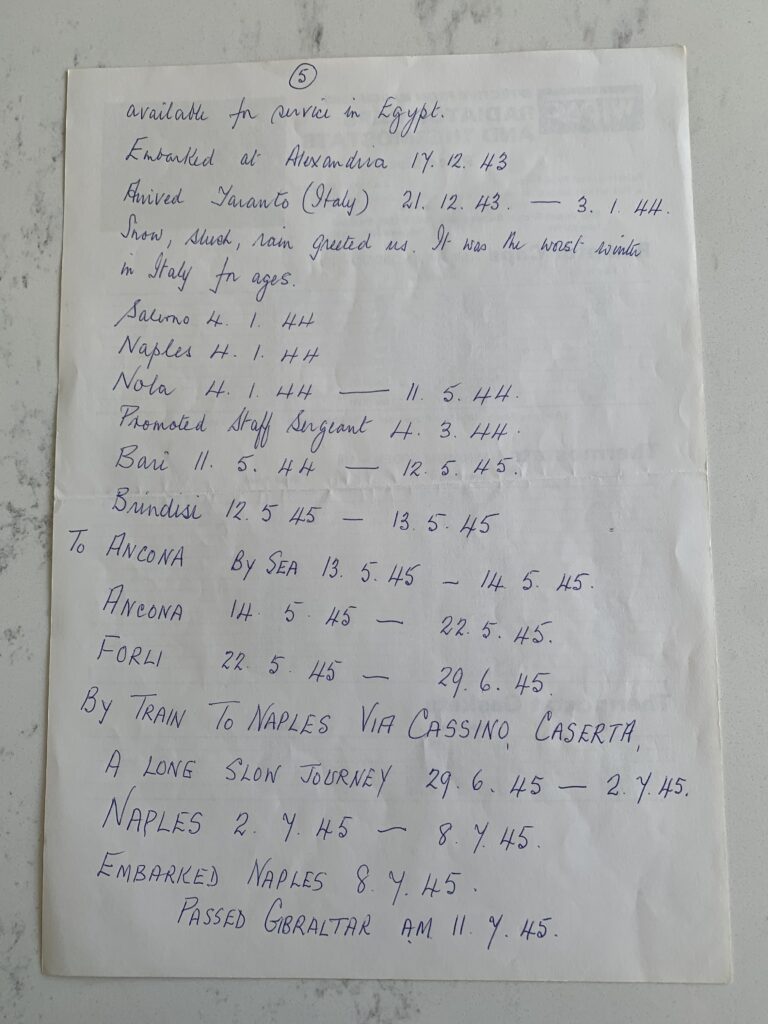 5
available for service in Egypt.
Embarked at Alexandria 17. 12. 43
Arrived Taranto (Italy) 21. 12. 43. — 3. 1. 44.
Snow, slush, rain greeted us. It was the worst winter
in Italy for ages.
Salerno 4. 1. 44
Naples 4. 1. 44
Nola 4. 1. 44 — 11. 5. 44.
Promoted Staff Sergeant 4. 3. 44.
Bari 11. 5. 44 — 12. 5. 45.
Brindisi 12. 5 45 — 13. 5. 45
To ANCONA BY SEA 13. 5. 45 — 14. 5. 45.
ANCONA 14. 5. 45 — 22. 5. 45.
FORLI 22. 5. 45 — 29. 6. 45.
BY TRAIN TO NAPLES VIA CASSINO, CASERTA,
A LONG SLOW JOURNEY 29. 6. 45 — 2. 7. 45.
NAPLES 2. 7. 45 — 8. 7. 45.
EMBARKED NAPLES 8. 7. 45.
PASSED GIBRALTAR AM 11. 7. 45.